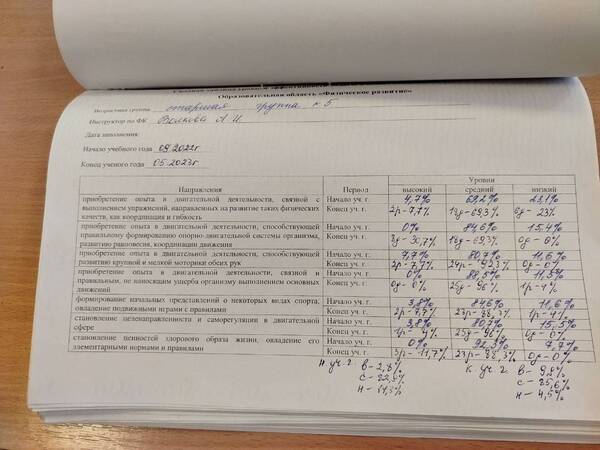 Образовательная область «Физическое развитие»
Возрастная группа старшая группа к 5
Инструктор по ФК Волкова А И.
Дата заполнения:
Начало учебного года 09.2022г
Конец ученого года 05.2023г
Направления Период Уровни
высокий средний низкий
приобретение опыта в двигательной деятельности, связной с выполнением упражнений, направленных на развитие таких физических качеств, как координация и гибкость
Начало уч. г. 4,7% 69,2% 23,1%
Конец уч. г. 2р-7,7% 69,3% 6д-23%
приобретение опыта в двигательной деятельности, способствующей правильному формированию опорно-двигательной системы организма, развитию равновесия, координации движения
Начало уч. г. 0% 84,6% 15,4%
Конец уч. г. 30,7% 18д-69,3% 0д-0%
приобретение опыта в двигательной деятельности, способствующей развитию крупной и мелкой моторики обеих рук
Начало уч. г. 7,7% 80,7% 11,6%
Конец уч. г. 2р-7,7% 24р-92,3% 0д-0%
приобретение опыта в двигательной деятельности, связной и правильным, не наносящим ущерба организму выполнением основных движений
Начало уч. г. 0% 88,5% 11,5%
Конец уч. г. 0д-0% 25д-96% 1р-4%
формирование начальных представлений о некоторых видах спорта, овладение подвижными играми с правилами
Начало уч. г. 3,8% 84,6% 11,6%
Конец уч. г. 2р-7,7% 23р-88,3% 1р-4%
становление целенаправленности и саморегуляции в двигательной сфере
Начало уч. г. 3,8% 80,7% 15,5%
Конец уч. г. 1р-4% 25д-96% 0д-0%
становление ценностей здорового образа жизни, овладение его элементарными нормами и правилами
Начало уч. г. 0% 92,3% 7,7%
Конец уч. г. 3р-11,7% 23р-88,3% 0д-0%
н. уч. г. в-2,8% к уч г. в-9,9%
с-82,9% с-85,6%
н- н-4,5%